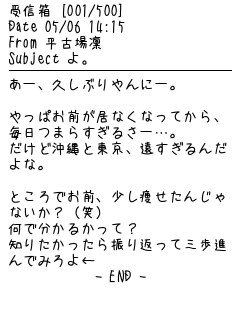 受信箱 [001/500]
Date 05/06 14:15
From 平古場凛
Subject よ。
あー、久しぶりやんにー。
やっぱお前が居なくなってから、
毎日つまらすぎるさー…。
だけど沖縄と東京、遠すぎるんだ
よな。
ところでお前、少し痩せたんじゃ
ないか？（笑）
何で分かるかって？
知りたかったら振り返って三歩進
んでみろよ←
- END -